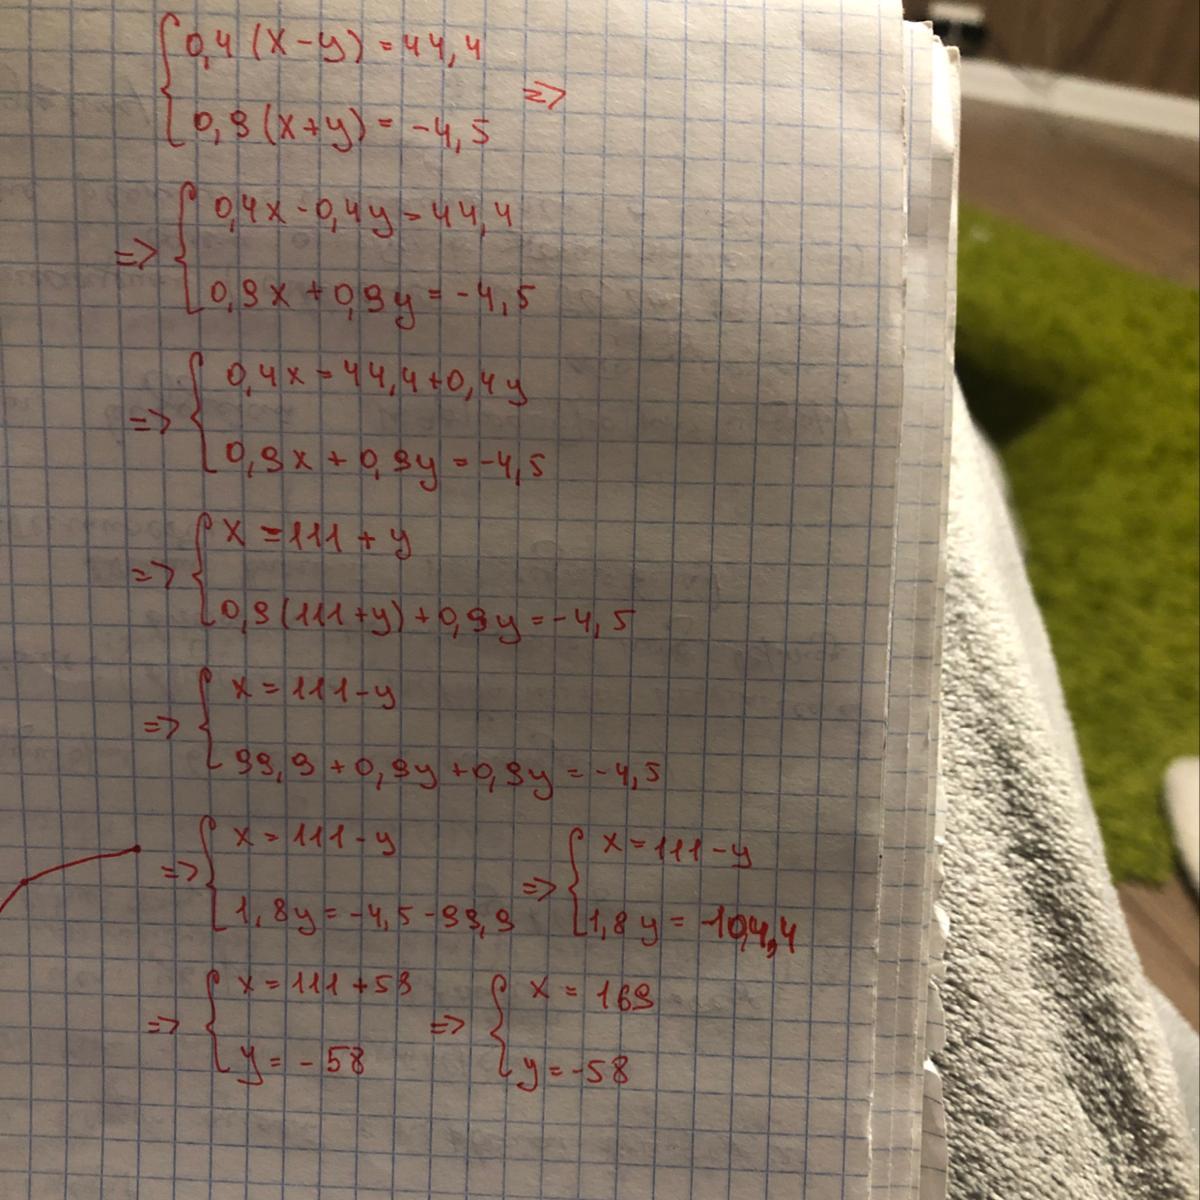 0,4(x-y)=44,4
=>
0,9(x+y)=-4,5
0,4x-0,4y=44,4
=>
0,9x+0,9y=-4,5
0,4x=44,4+0,4y
=>
0,9x+0,9y=-4,5
x=111+y
=>
0,9(111+y)+0,9y=-4,5
x=111-y
=>
99,9+0,9y+0,9y=-4,5
x=111-y
x=111-y
=>
=>
1,8y=-4,5-99,9
1,8y=-104,4
x=111+58
x=169
=>
=>
y=-58
y=-58